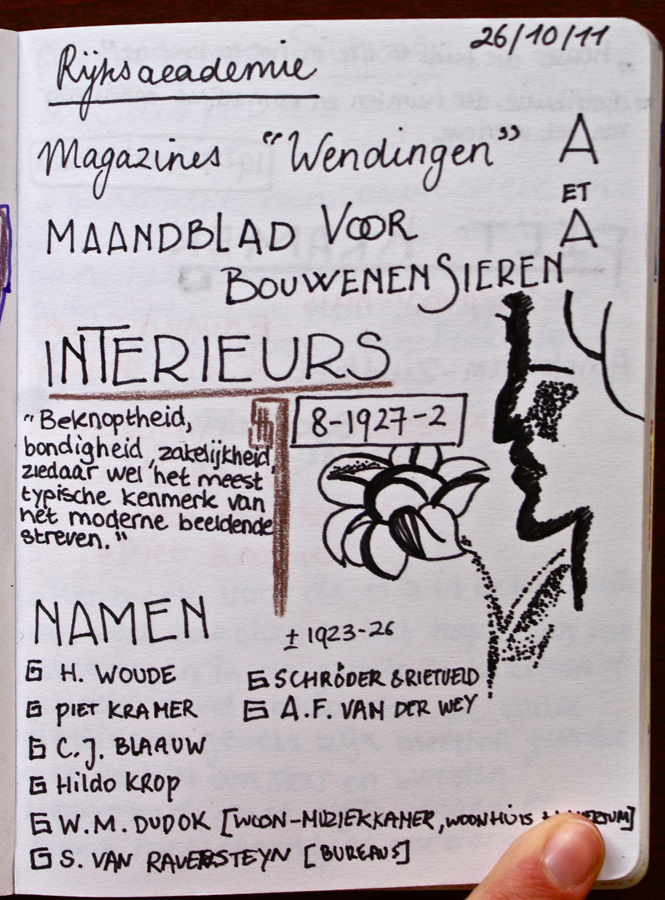 26/10/11
Rijksacademie
Magazines "Wendingen"
A
ET
A
MAANDBLAD VOOR
BOUWEN EN SIEREN
INTERIEURS
8-1927-2
"Beknoptheid,
bondigheid, zakelijkheid
ziedaar wel het meest
typische kenmerk van
het moderne beeldende
streven."
NAMEN
± 1923-26
H. WOUDE
PIET KRAMER
C.J. BLAAUW
Hildo KROP
W.M. DUDOK [WOON-MUZIEKKAMER, WOONHUIS
S. VAN RAVESTEYN [BUREAUS]
SCHRÖDER & RIETVELD
A.F. VAN DER WEY